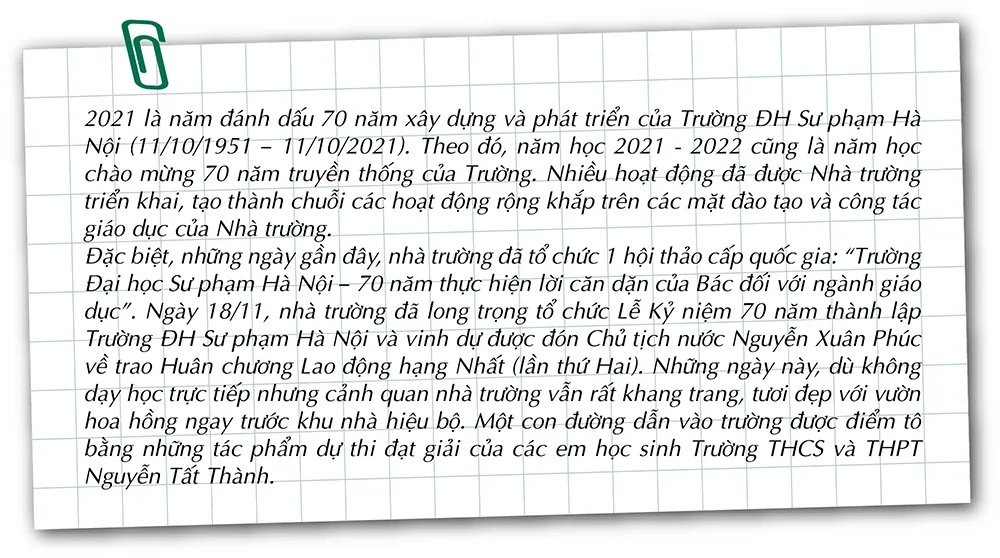 2021 là năm đánh dấu 70 năm xây dựng và phát triển của Trường ĐH Sư phạm Hà
Nội (11/10/1951 – 11/10/2021). Theo đó, năm học 2021 - 2022 cũng là năm học
chào mừng 70 năm truyền thống của Trường. Nhiều hoạt động đã được Nhà trường
triển khai, tạo thành chuỗi các hoạt động rộng khắp trên các mặt đào tạo và công tác
giáo dục của Nhà trường.
Đặc biệt, những ngày gần đây, nhà trường đã tổ chức 1 hội thảo cấp quốc gia: “Trường
Đại học Sư phạm Hà Nội – 70 năm thực hiện lời căn dặn của Bác đối với ngành giáo
dục”. Ngày 18/11, nhà trường đã long trọng tổ chức Lễ Kỷ niệm 70 năm thành lập
Trường ĐH Sư phạm Hà Nội và vinh dự được đón Chủ tịch nước Nguyễn Xuân Phúc
về trao Huân chương Lao động hạng Nhất (lần thứ Hai). Những ngày này, dù không
dạy học trực tiếp nhưng cảnh quan nhà trường vẫn rất khang trang, tươi đẹp với vườn
hoa hồng ngay trước khu nhà hiệu bộ. Một con đường dẫn vào trường được điểm tô
bằng những tác phẩm dự thi đạt giải của các em học sinh Trường THCS và THPT
Nguyễn Tất Thành.